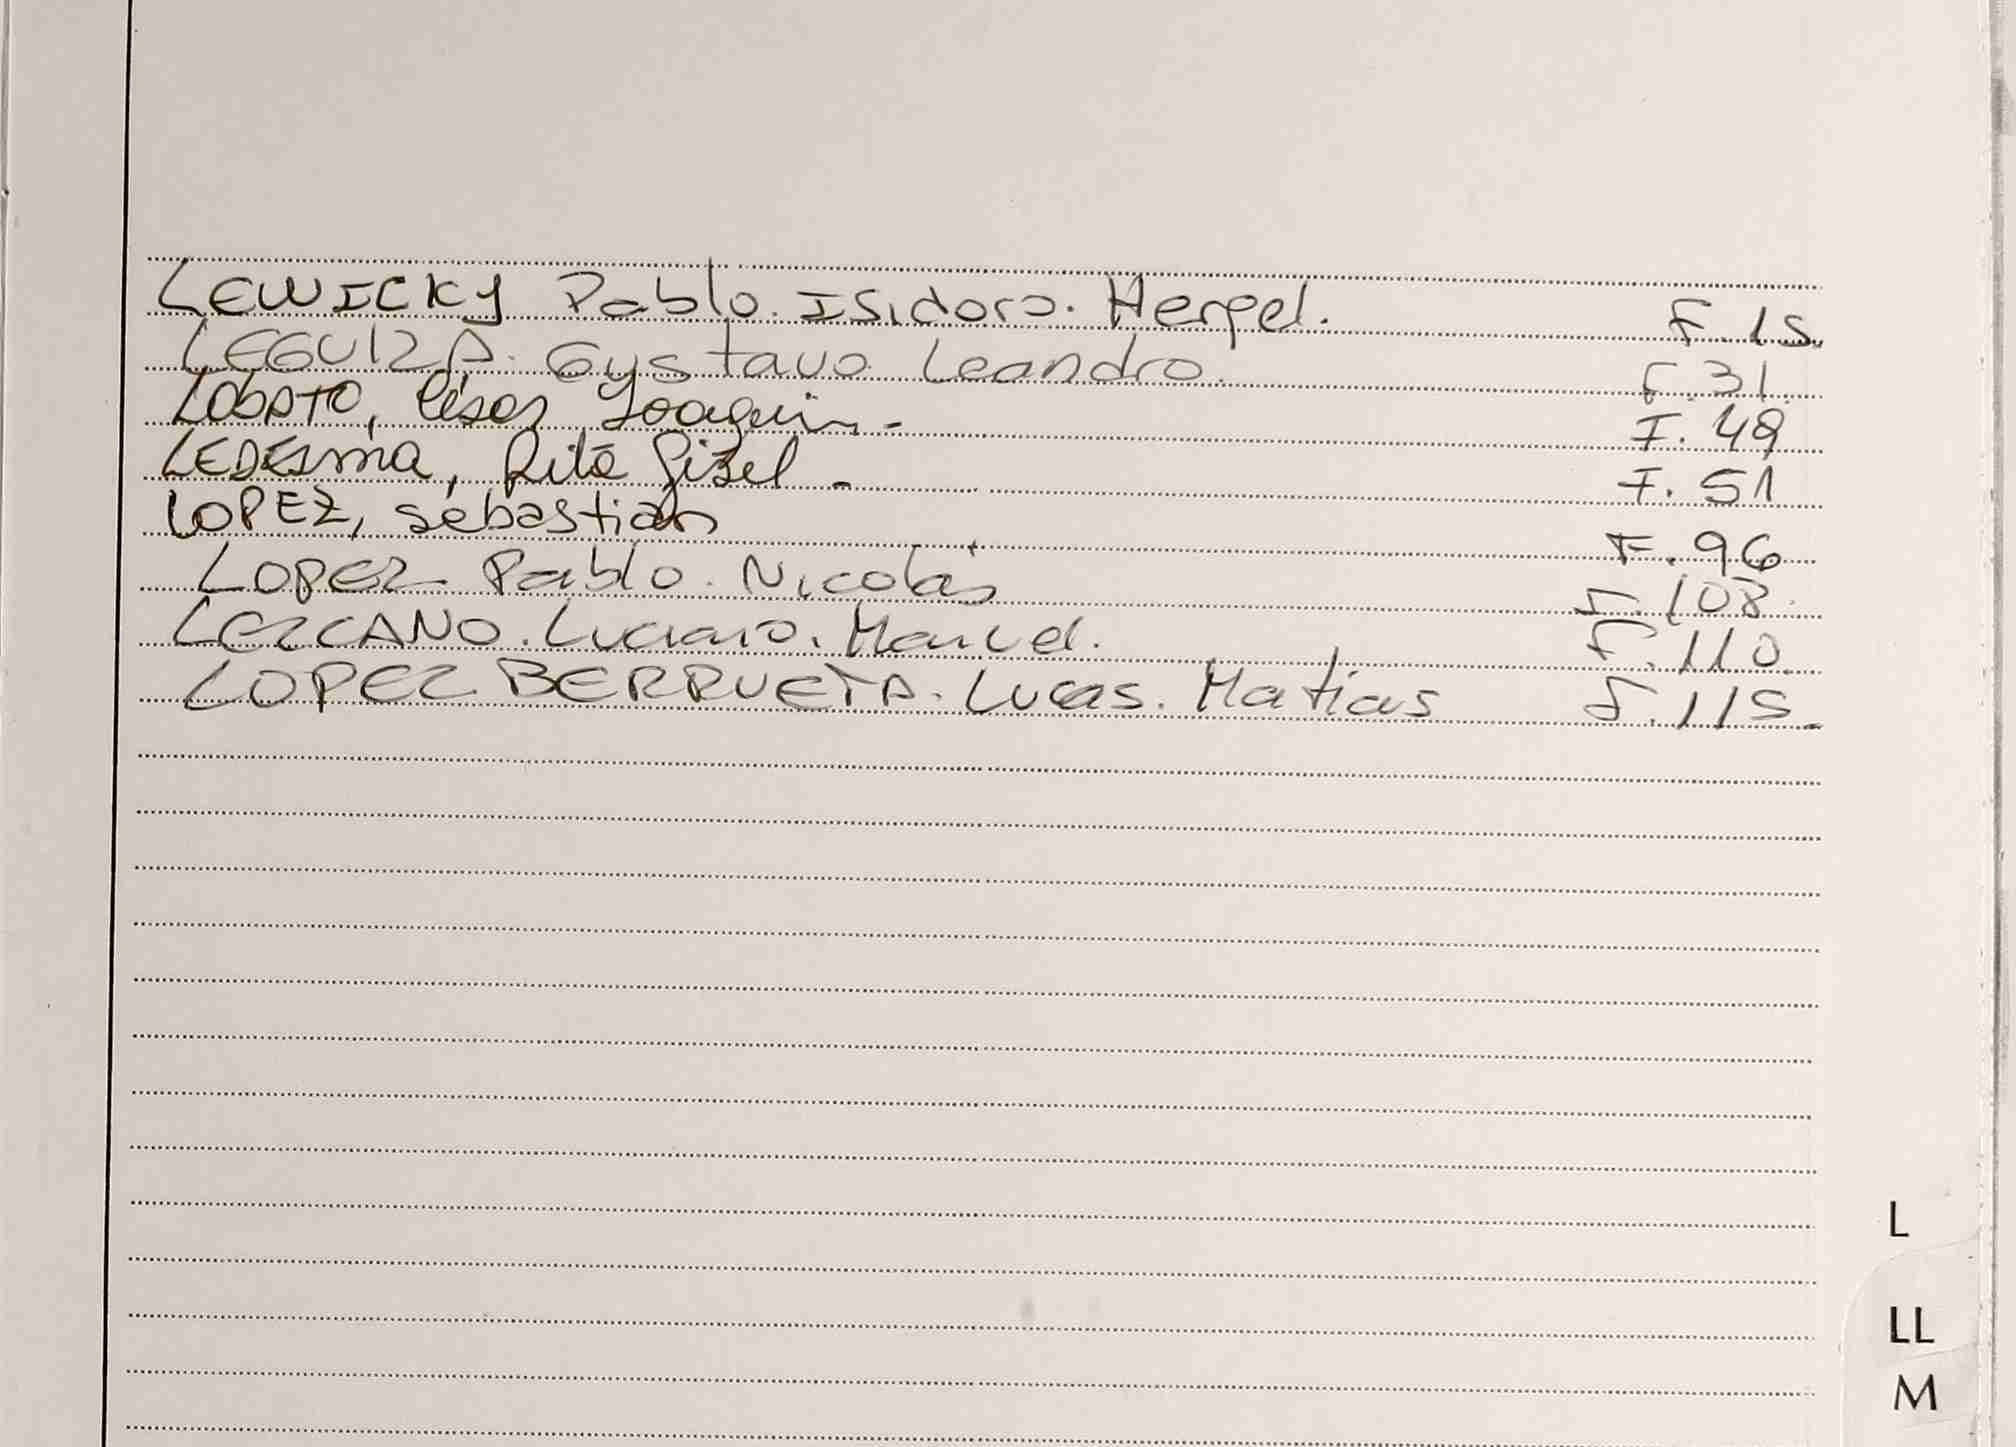 LEWICKY Pablo. Isidoro. Herpel. F. 15.
LEGUIZA. Gustavo Leandro. F. 31.
LOBATO, César Joaquin.- F. 49
LEDESMA, Rita Gisel.- F. 51
LOPEZ, sebastian F. 96
LOPEZ Pablo. Nicolás F. 108.
LEZCANO. Luciano. Manuel. F. 110.
LOPEZ BERRUETA. Lucas. Matias F. 115.-
L
LL
M